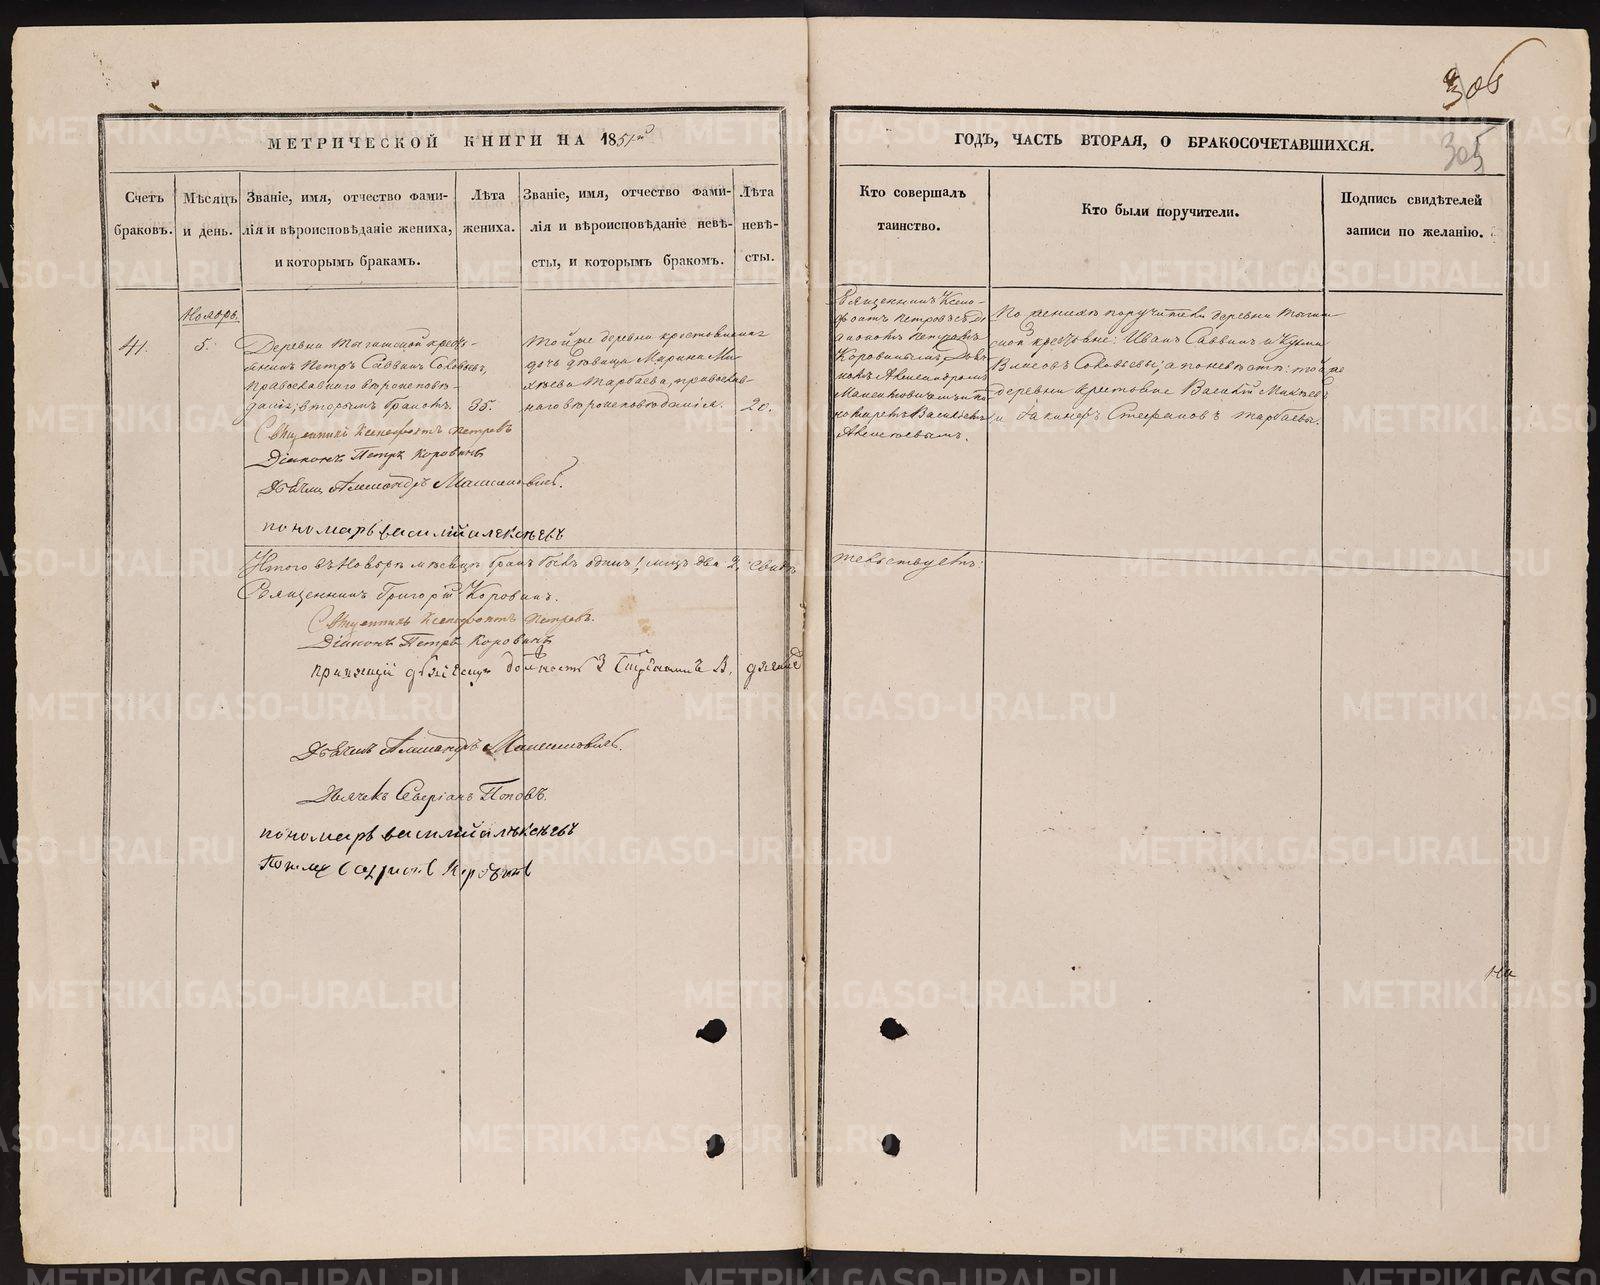 306
305
МЕТРИЧЕСКОЙ КНИГИ НА 1851й
ГОДЪ, ЧАСТЬ ВТОРАЯ, О БРАКОСОЧЕТАВШИХСЯ.
Счетъ браковъ.
Мѣсяцъ и день.
Званіе, имя, отчество фами-
лія и вѣроисповѣданіе жениха,
и которымъ бракам.
Лѣта
жениха.
Званіе, имя, отчество фами-
лія и вѣроисповѣданіе невѣ-
сты, и которымъ бракомъ.
Лѣта
невѣ-
сты.
Кто совершалъ
таинство.
Кто были поручители.
Подпись свидѣтелей
записи по желанію.
Ноябрь.
41.
5.
Деревни кресть-
янинъ Петръ Саввинъ Соковьевъ,
православнаго вѣроисповѣ-
данія; вторымъ бракомъ.
35.
Тойже деревни крестьянина
дочь дѣвица Марина Ми-
хѣева Тарбаева, православ-
наго вѣроисповѣданія.
20.
Священникъ Ксено-
фонтъ Петровъ съ Ді-
акономъ Петромъ
Коровинымъ, Дьяч-
комъ Александромъ
Василіемъ
Алексѣевымъ.
По женихѣ поручители деревни
крестьяне: Иванъ Саввинъ и Кузма
Власовъ Соковьевы; а по невѣстѣ: тойже
деревни крестьяне Василій Михѣевъ
и Стефановъ Тарбаевы.
Священникъ Ксенофонтъ Петровъ
Діаконъ Петръ Коровинъ
Дьячекъ Александръ
пономарь василій алексѣевъ
Итого въ Ноябрѣ мѣсяцѣ бракъ былъ одинъ 1, лицъ два 2, свидѣ
тельствуетъ:
Священникъ Григорій Коровинъ.
Священникъ Ксенофонтъ Петровъ.
Діаконъ Петръ Коровинъ
Дьячекъ Александръ
Дьячекъ Северіанъ Поповъ.
пономарь василій алексѣевъ
Коровинъ